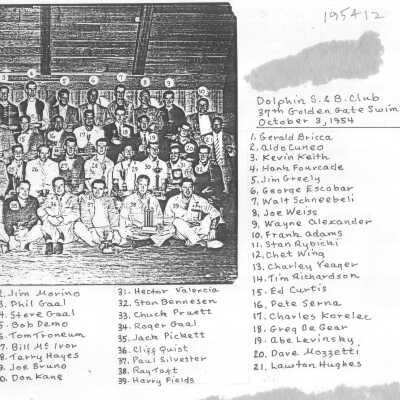 195412
Dolphin S. & B. Club
37th Golden Gate Swim
October 3, 1954
1. Gerald Bricca
2. Aldo Cuneo
3. Kevin Keith
4. Hank Fourcade
5. Jim Greely
6. George Escobar
7. Walt Schneebeli
8. Joe Weiss
9. Wayne Alexander
10. Frank Adams
11. Stan Rybicki
12. Chet Wing
13. Charley Yeager
14. Tim Richardson
15. Ed Curtis
16. Pete Serna
17. Charles Korelec
18. Greg De Gear
19. Abe Levinsky
20. Dave Mozzetti
21. Lawton Hughes
2. Jim Morino
3. Phil Gaal
4. Steve Gaal
5. Bob Demo
6. Tom Troneum
7. Bill Mc Ivor
8. Terry Hayes
9. Joe Bruno
0. Don Kane
31. Hector Valencia
32. Stan Bennesen
33. Chuck Pruett
34. Roger Gaal
35. Jack Pickett
36. Cliff Quist
37. Paul Silvester
38. Ray Taft
39. Harry Fields